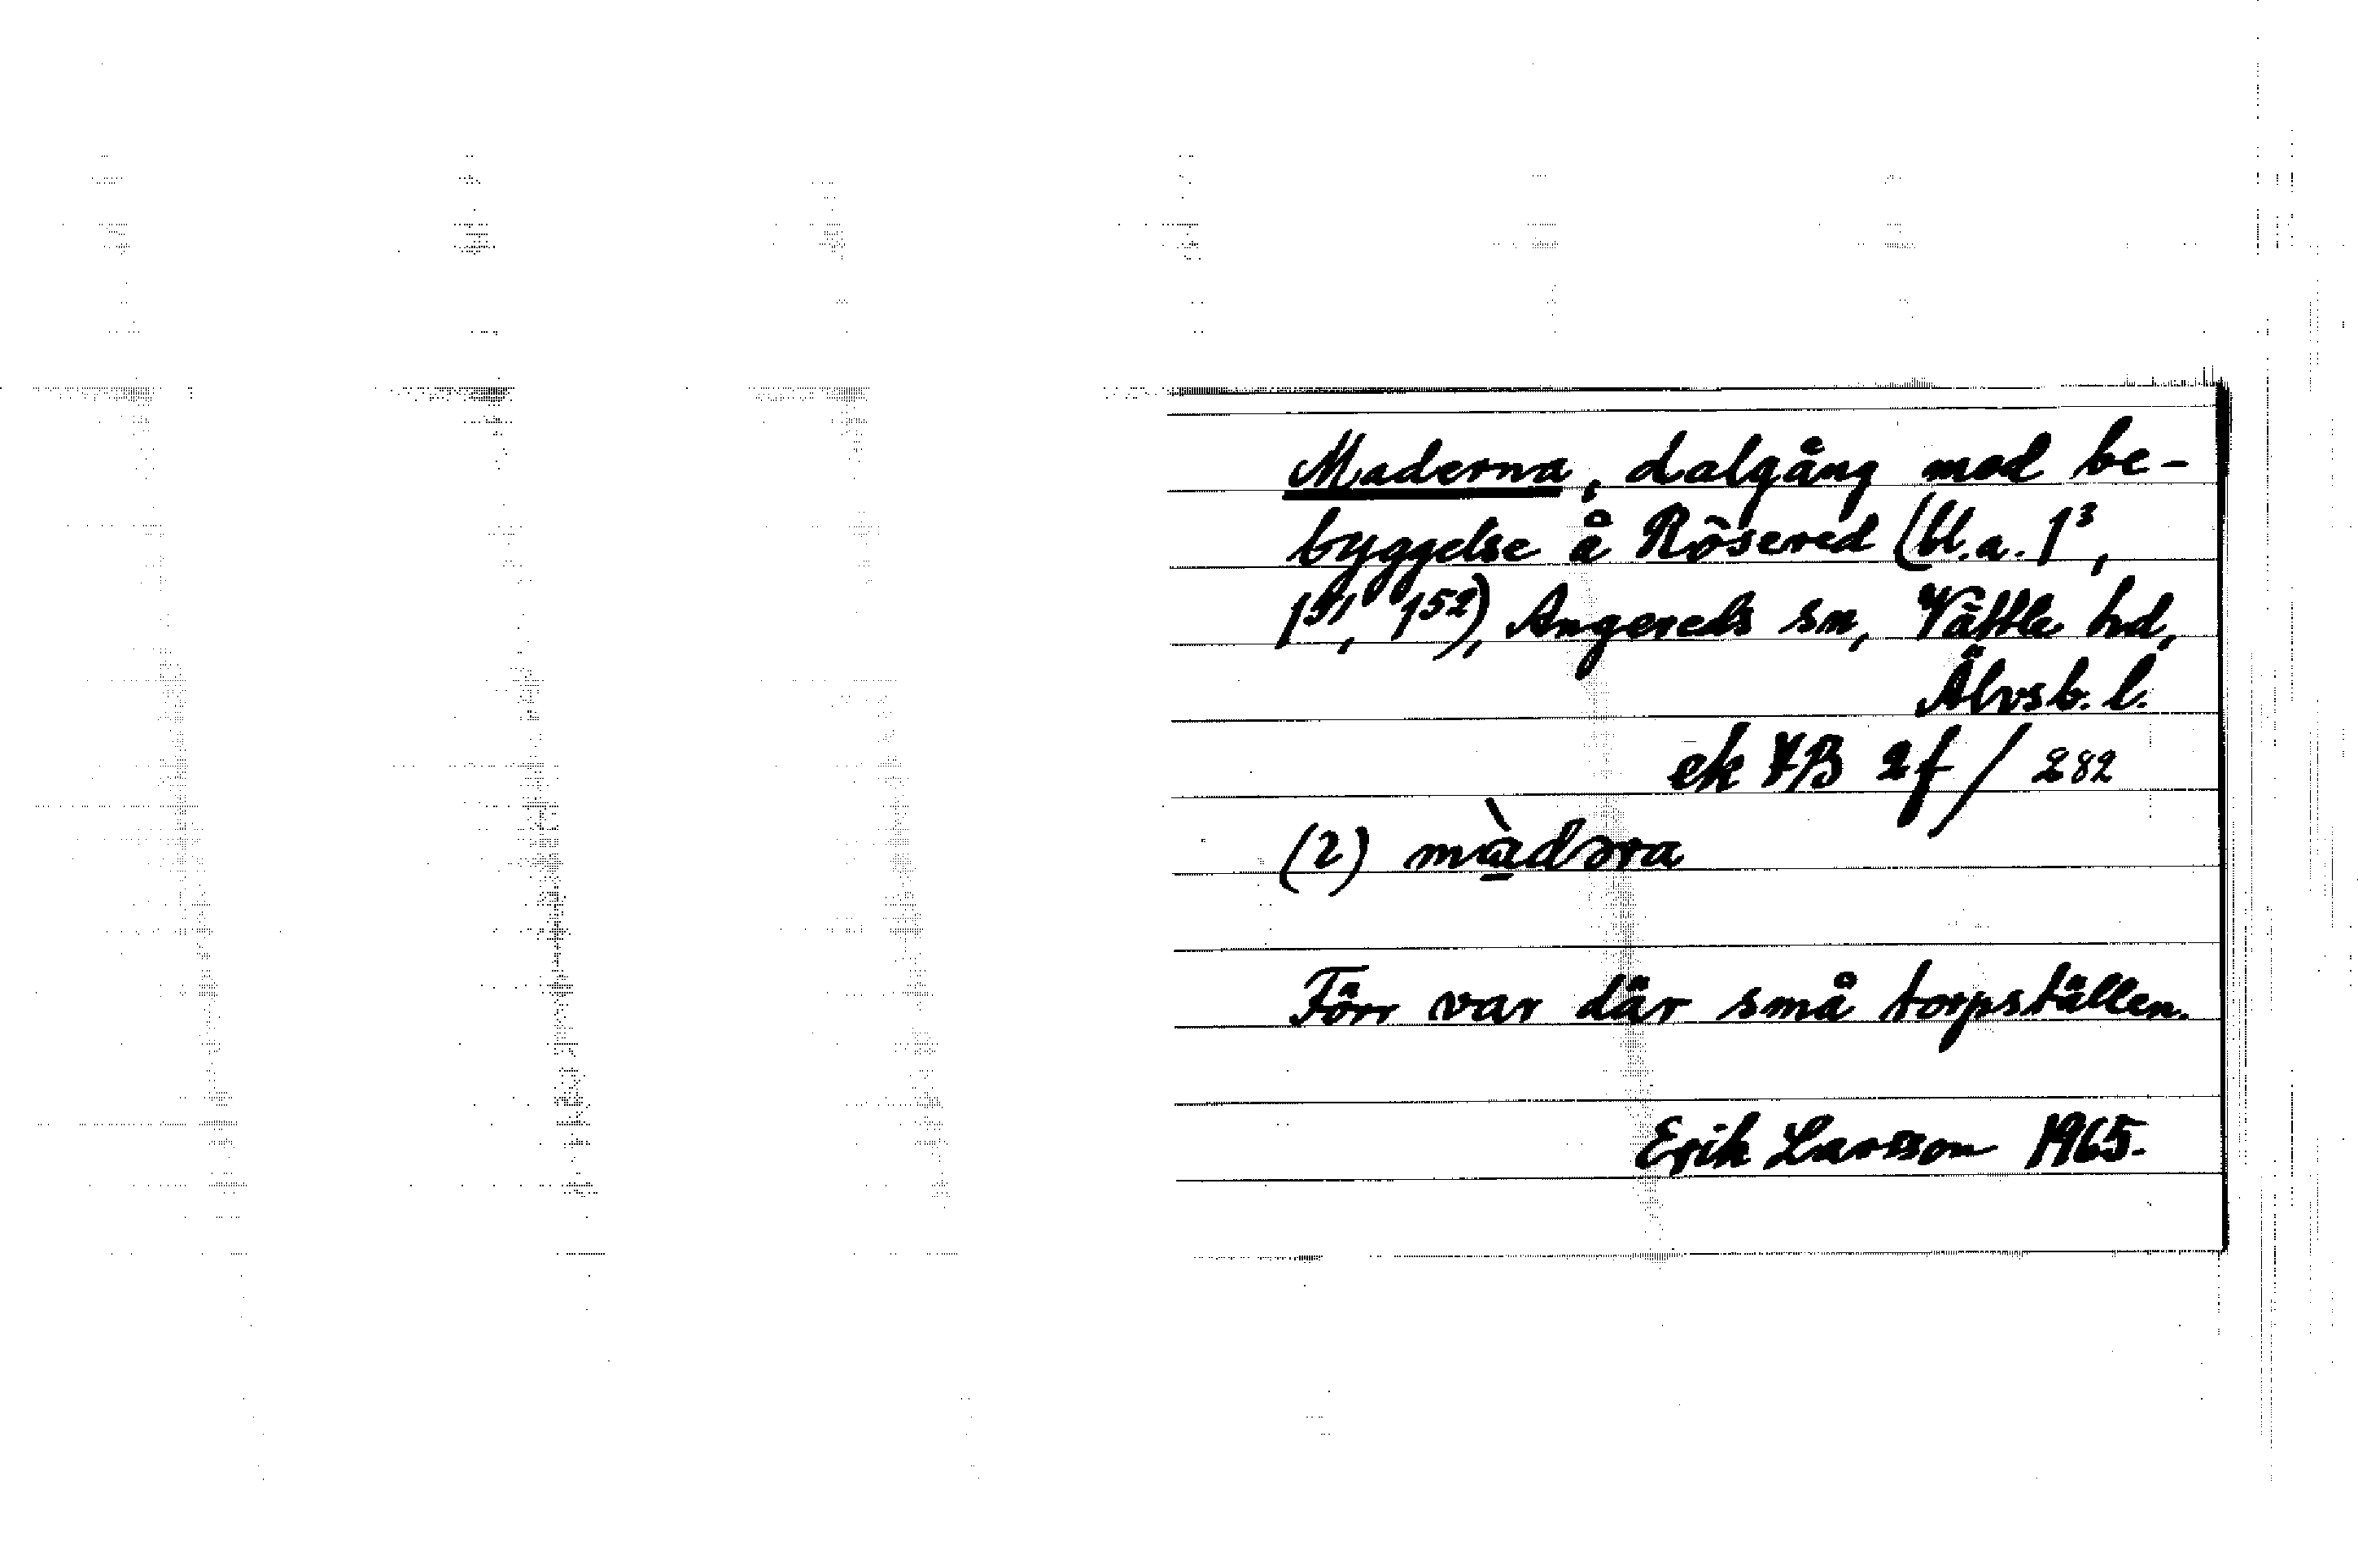 Maderna, dalgång med be-
byggelse å Rösered (bl.a. 1³,
1⁵¹, 1⁵²), Angereds sn, Vättle hd,
Älvsb. l.
ek 7B 2f / 282
(2) màdəra
Förr var där små torpställen.
Erik Larsson 1965.